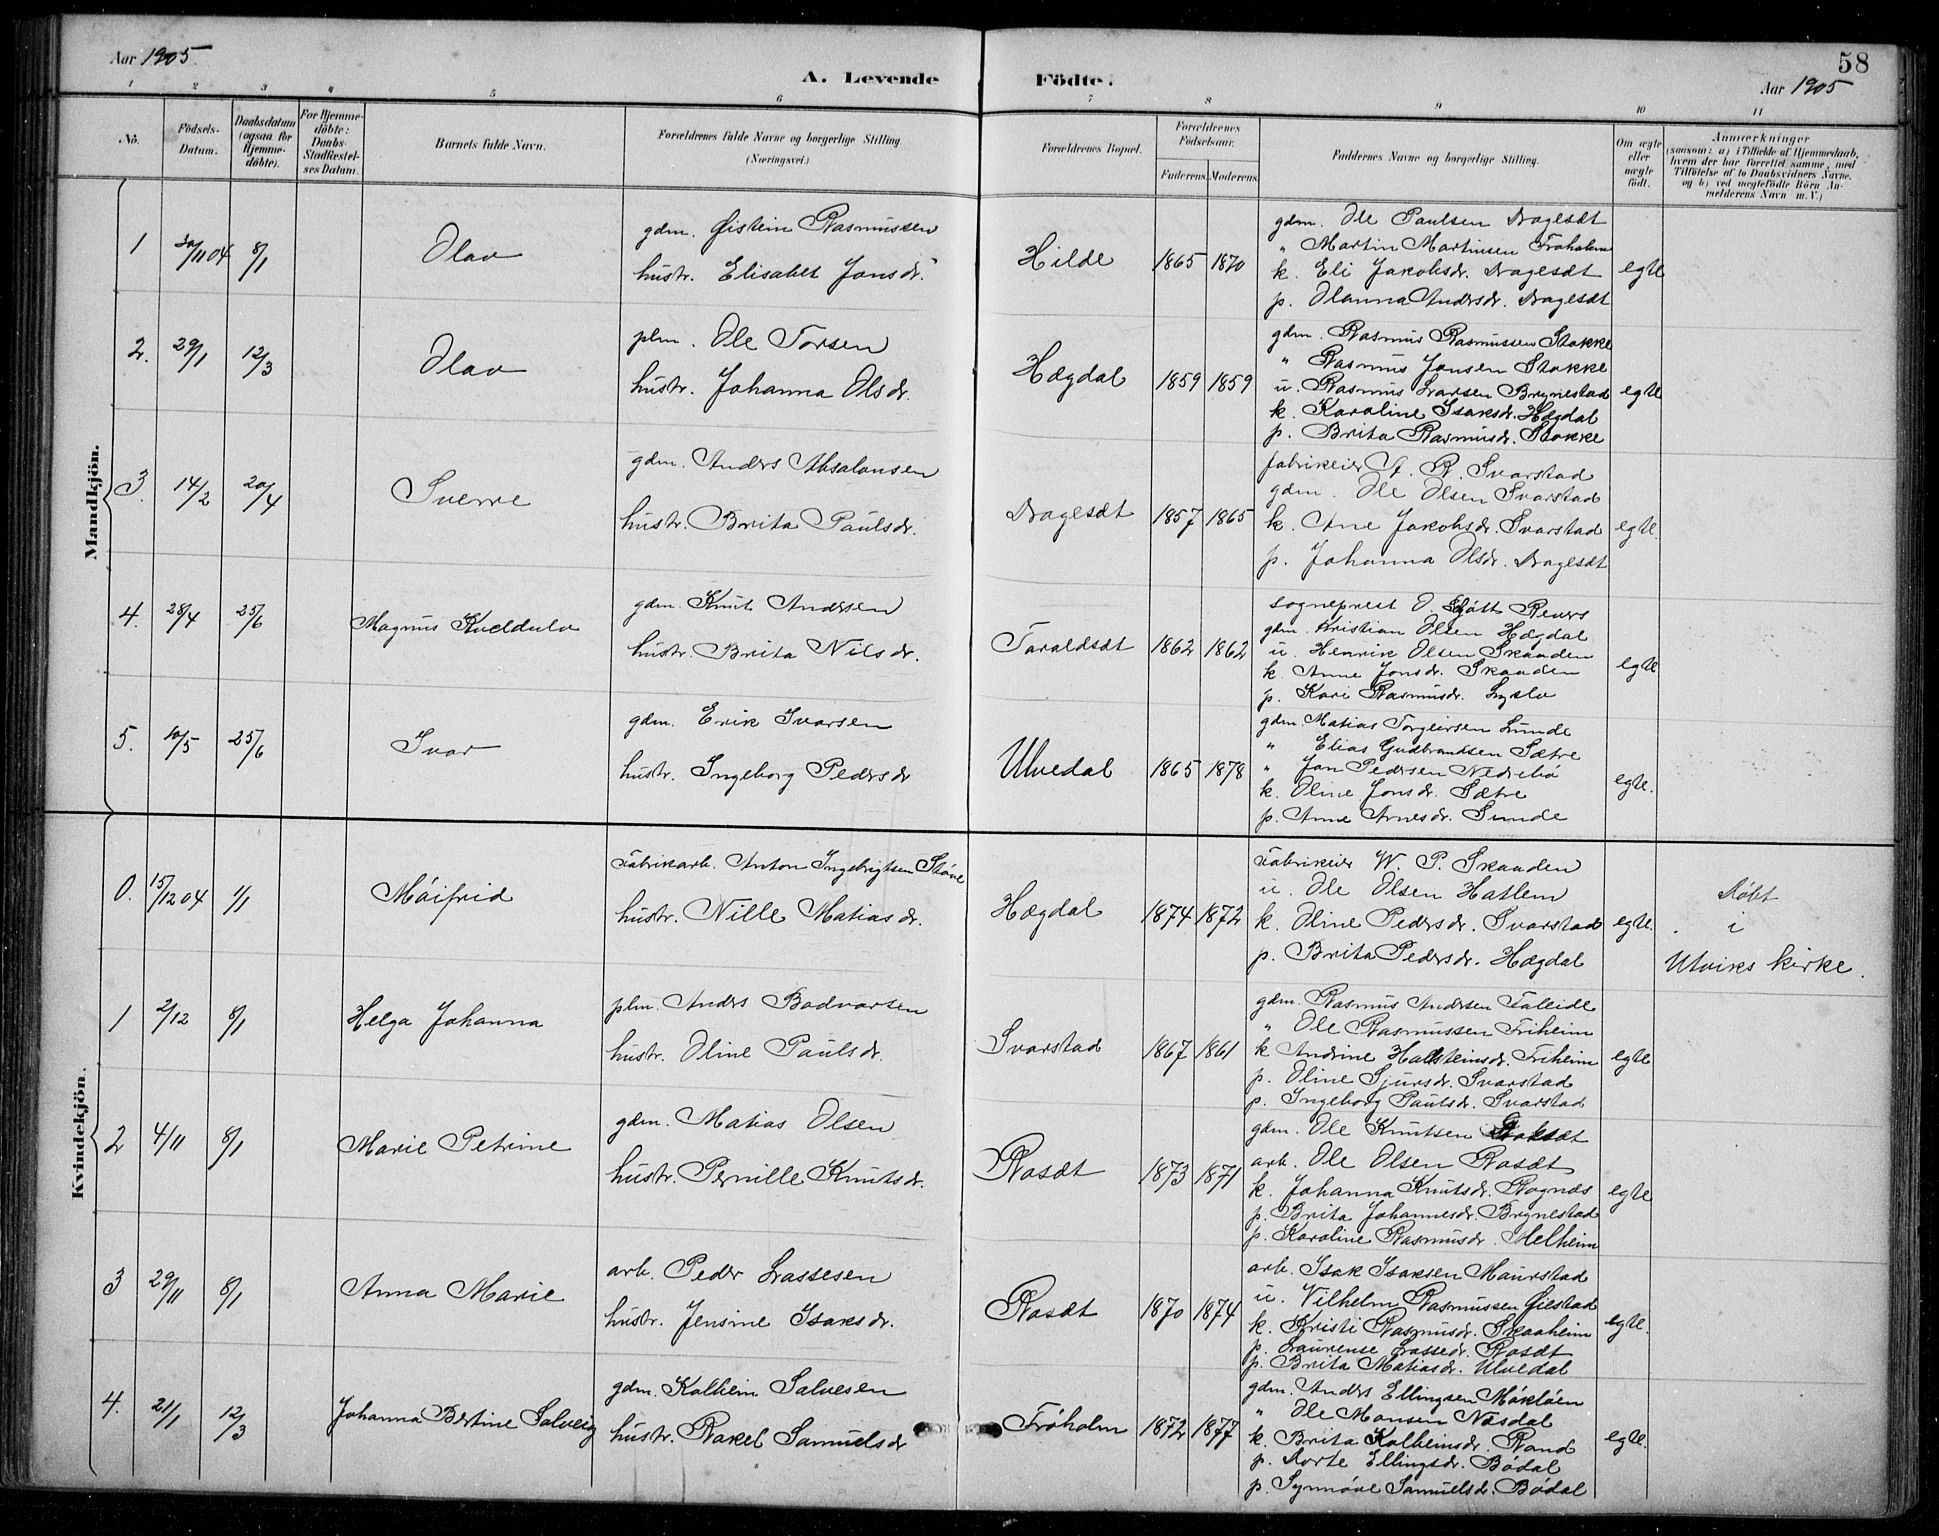 58
Aar 1905.
A. Levende Födte.
Aar 1905
1 2 3 4 5 6 7 8 9 10 11
No.
Födsels-Datum.
Daabsdatum (ogsaa for Hjemme-döbte).
For Hjemme-döbte: Daabs-Stadfæstel-ses Datum.
Barnets fulde Navn.
Forældrenes fulde Navne og borgerlige Stilling (Næringsvei.)
Forældrenes Bopæl.
Forældrenes Födselsaar.
Faderens. Moderens.
Faddernes Navne og borgerlige Stilling.
Om ægte eller uægte födt.
Anmærkninger
(saasom: a) i Tilfælde af Hjemmedaab,
hvem der har forrettet samme, med
Tilföielse af to Daabsvidners Navne,
og b) ved uægtefödte Börn An-
melderens Navn m. V.)
Mandkjön.
1 30/11 04 8/1 Olav
gdm. Øistein Rasmussen
hustr. Elisabet Jonsdr.
Hilde 1865 1870
gdm. Ole Paulsen Dragesæt
" Martin Martinsen Frøholm
k. Eli Jakobsdr. Dragesæt
p. Olanna Andersdr. Dragesæt
egte
2. 29/1 12/3 Olav
plm. Ole Torsen
hustr. Johanna Olsdr.
Hægdal 1859 1859
gdm. Rasmus Rasmussen Stokke
" Rasmus Jonsen Stokke
u. Rasmus Larsen Brynestad
k. Karoline Isaksdr. Hægdal
p. Brita Rasmusdr. Stokke
egte
3. 14/2 20/4 Sverre
gdm. Anders Absalonsen
hustr. Brita Paulsdr.
Dragesæt 1857 1865
fabrikeier A. R. Svarstad
gdm. Ole Olsen Svarstad
k. Ane Jakobsdr. Svarstad
p. Johanna Olsdr. Dragesæt
egte.
4. 28/4 25/6 Magnus Kveldulv
gdm. Knut Andersen
hustr. Brita Nilsdr.
Taraldsæt 1862 1862
sogneprest O. Skjøtt Reurs
gdm. Kristian Olsen Hægdal
u. Henrik Olsen Skaaden
k. Anne Jonsdr. Skaaden
p. Kari Rasmusdr. Lyslo
egte
5. 10/5 25/6 Ivar
gdm. Erik Ivarsen
hustr. Ingeborg Pedersdr
Ulvedal 1865 1878
gdm. Matias Torgeirsen Lunde
" Elias Gudbrandsen Sætre
" Jon Pedersen Nedrebø
k. Oline Jonsdr. Sætre
p. Anne Arnesdr. Sunde
egte.
Kvindekjön.
0. 15/12 04 1/1 Móifrid
Fabrikarb. Anton Ingebrigtsen Støve
hustr. Nille Matiasdr.
Hægdal 1874 1872
Fabrikeier W P. Skaaden
u. Ole Olsen Hatlem
k. Oline Pedersdr. Svarstad
p. Brita Pedersdr. Hægdal
egte.
Døbt
i
Utviks kirke.
1 2/12 8/1 Helga Johanna
plm. Anders Bodvarsen
hustr. Oline Paulsdr.
Svarstad 1867 1861
gdm. Rasmus Andersen Faleide
" Ole Rasmussen Friheim
k Andrine Hallsteinsdr. Friheim
p. Oline Sjursdr. Svarstad
p. Ingeborg Paulsdr. Svarstad
egte
2 4/11 8/1 Marie Petrine
gdm. Matias Olsen
hustr. Pernille Knutsdr.
Rosæt 1873 1871
gdm. Ole Knutsen
arb. Ole Olsen Rosæt
k. Johanna Knutsdr. Rognes
p. Brita Johannesdr. Brynestad
p. Karoline Rasmusdr. Melheim
egte
3 29/11 8/1 Anna Marie
arb. Peder Lassesen
hustr. Jensine Isaksdr.
Rosæt 1870 1874
arb. Isak Isaksen Maurstad
u. Vilhelm Rasmussen Øiestad
k. Kristi Rasmusdr. Skaaheim
p. Laurense Lassedr. Rosæt
p. Brita Matiasdr. Ulvedal
egte.
4. 21/1 12/3 Johanna Bertine Solveig
gdm. Kolbein Salvesen
hustr. Rakel Samuelsdr
Frøholm 1872 1877
gdm. Anders Ellingsen Mókløen
" Ole Monsen Nesdal
k. Brita Kolbeinsdr. Rand
p. Dorte Ellingsdr. Bødal
p. Synnøve Samuelsdr. Bødal
egte.